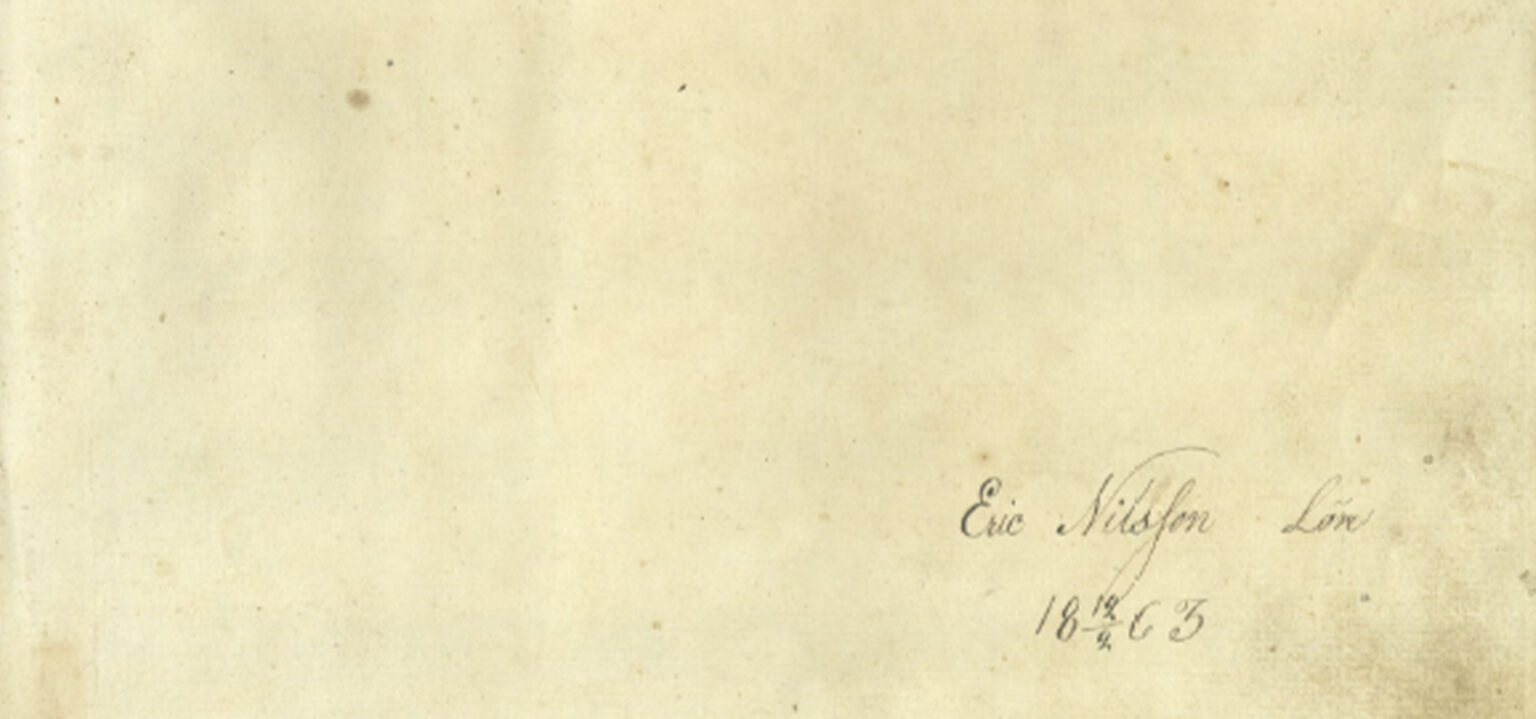 Eric Nilsson Löre
18 12/2 63